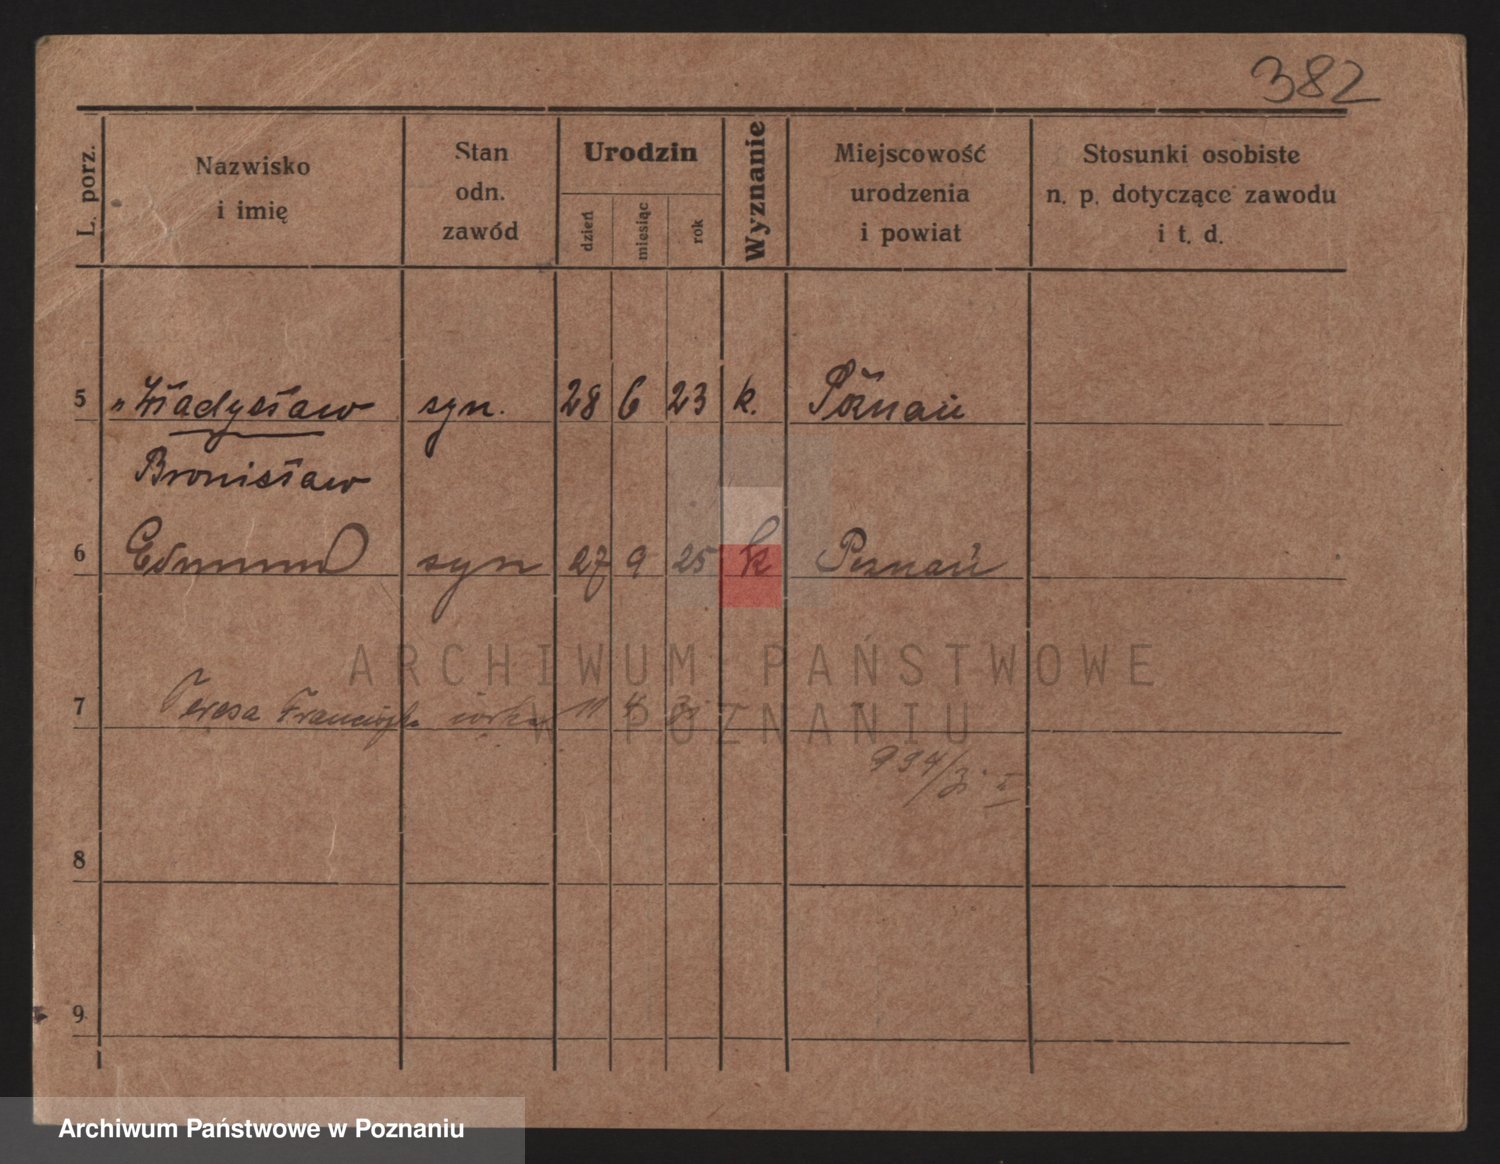 382
L. porz.
Nazwisko
i imię
Stan
odn.
zawód
Urodzin
dzień
miesiąc
rok
Wyznanie
Miejscowość
urodzenia
i powiat
Stosunki osobiste
n. p. dotyczące zawodu
i t. d.
5 „Władysław syn. 28 6 23 k. Poznań
Bronisław
6 Edmund syn 27 9 25 k Poznań
7 Teresa córka 11
994/31 I
8
9
ARCHIWUM PAŃSTWOWE
W POZNANIU
Archiwum Państwowe w Poznaniu